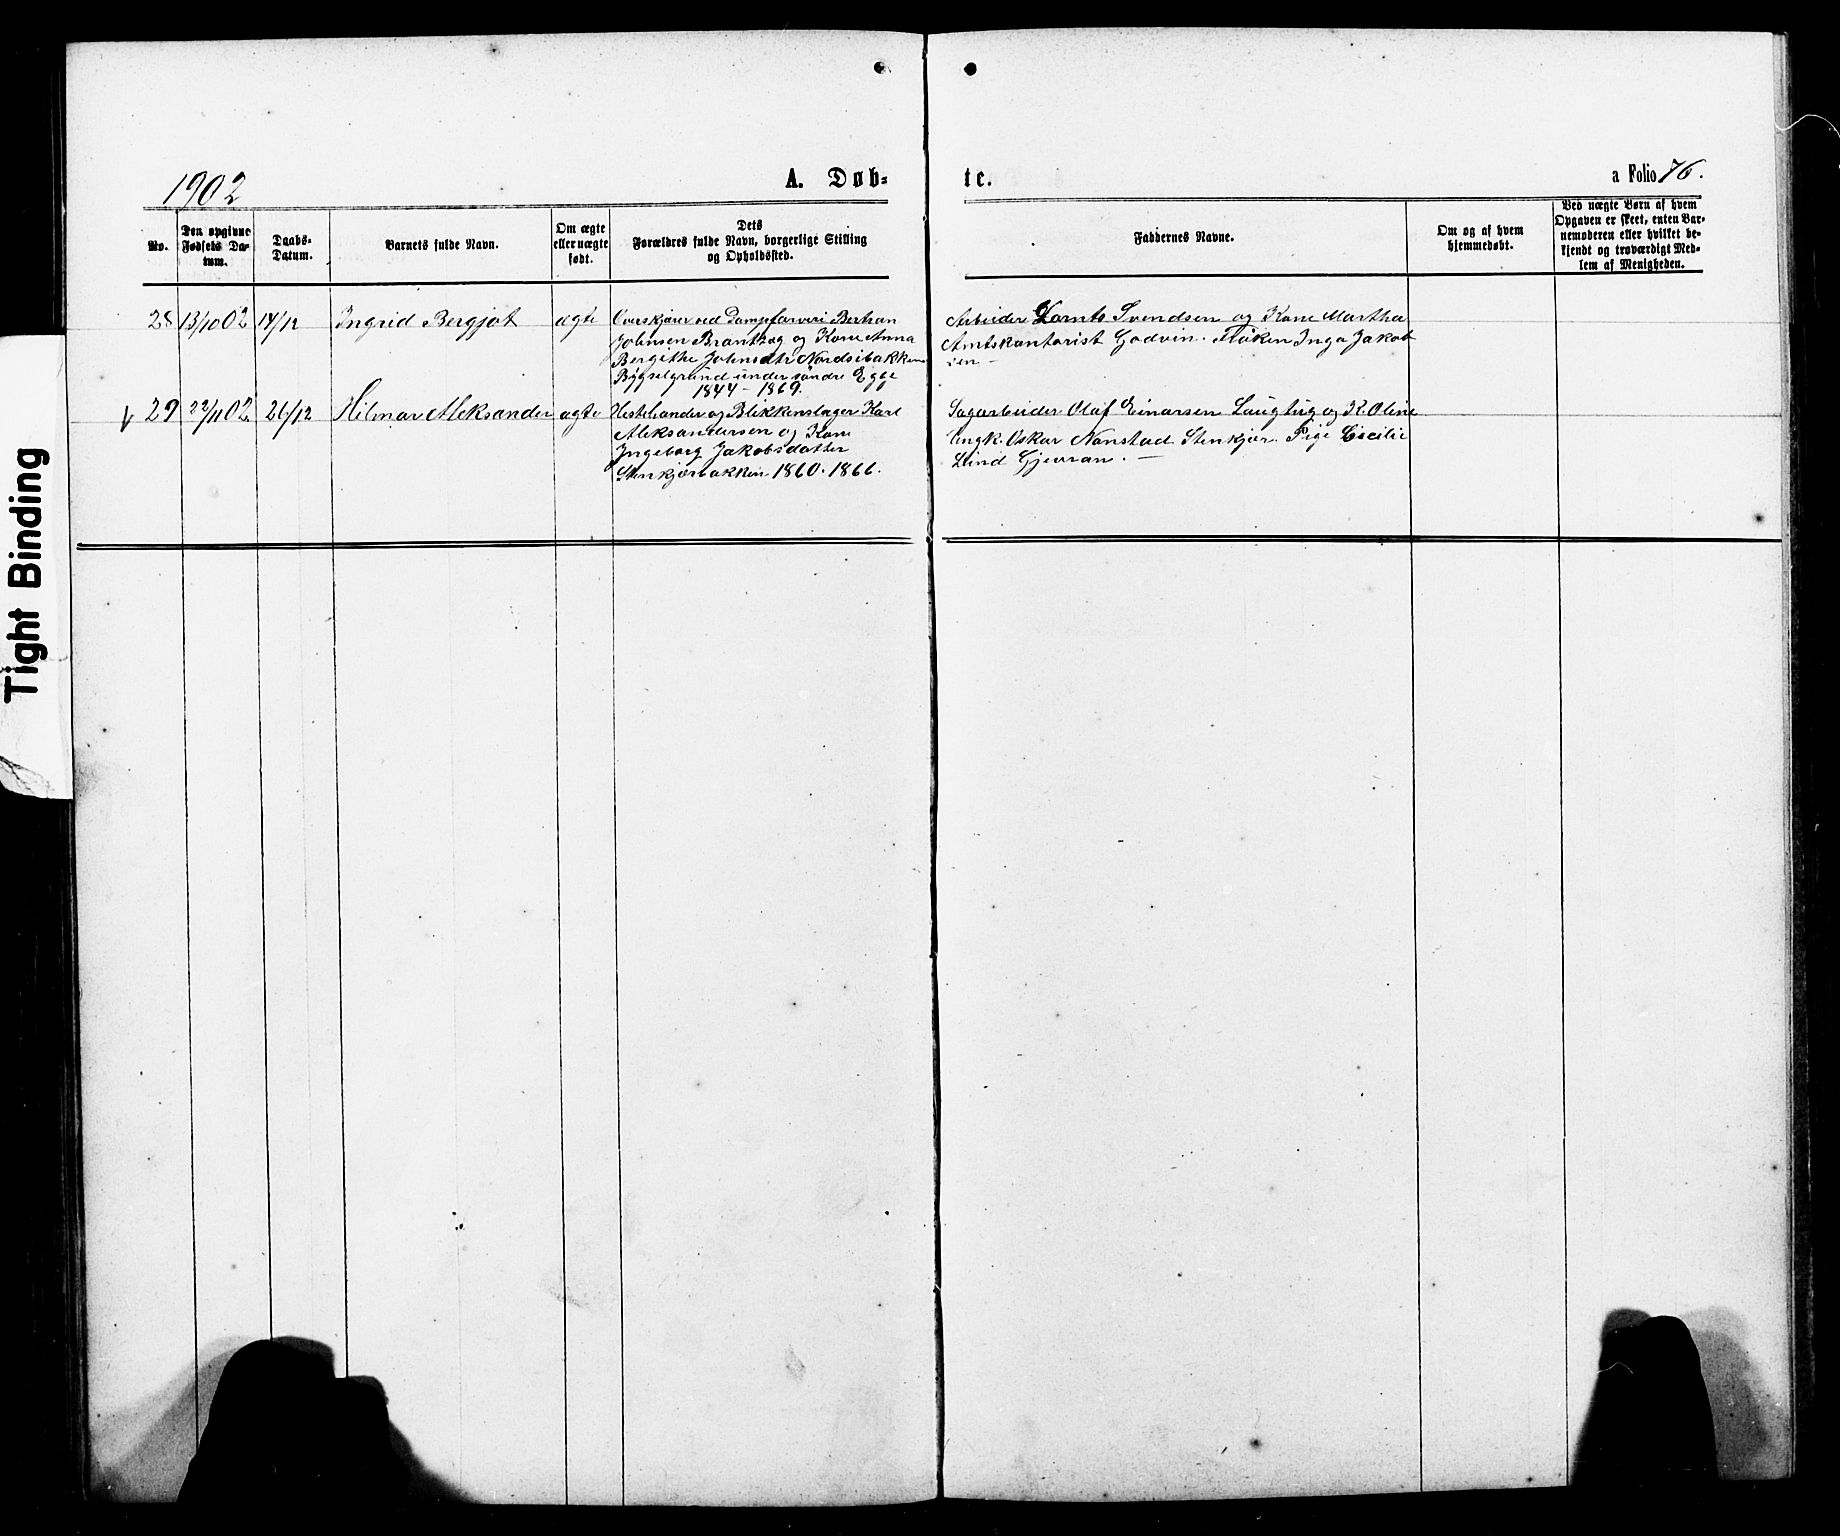 1902
A. Døb-
te.
a Folio 76.
No.
Den opgivne
Fødsels Da-
tum.
Daabs-
Datum.
Barnets fulde Navn.
Om ægte
eller uægte
født.
Dets
Forældres fulde Navn, borgerlige Stilling
og Opholdssted.
Faddernes Navne.
Om og af hvem
hjemmedøbt.
Ved uægte Børn af hvem
Opgaven er skeet, enten Bar-
nemoderen eller hvilket be-
kjendt og troværdigt Med-
lem af Menigheden.
28 13/10 02 14/12 Ingrid Bergjot ægte
Overskjærer ved Dampfarveri Bertran
Johnsen Brantzæg og Kone Anna
Bergithe Johnsdtr Nordsibakken
Bygselgrund under söndre Egge
1844 - 1869.
Arbeider Lornts Svendsen og Kone Martha
Amtskontorist Godvin. Fröken Inga Jakob
sen -
29 22/11 02. 26/12 Hilmar Aleksander ægte
Hestehandler og Blikkenslager Karl
Aleksandersen og Kone
Ingeborg Jakobsdatter
Stenkjærbakken 1860. 1866.
Sagarbeider Olaf Einarsen Laugtug og K. Oline
Ungk. Oskar Nonstad Stenkjær. Pige Cecilie
Lund Gjævran. -
Tight Binding